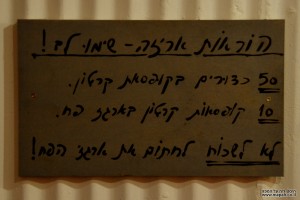 הוראות אריזה - שימו לב!
50 כדורים בקופסאת קרטון.
10 קופסאות קרטון בארגז פח.
לא לשכוח לחתום את ארגז הפח!
www.mapah.co.il